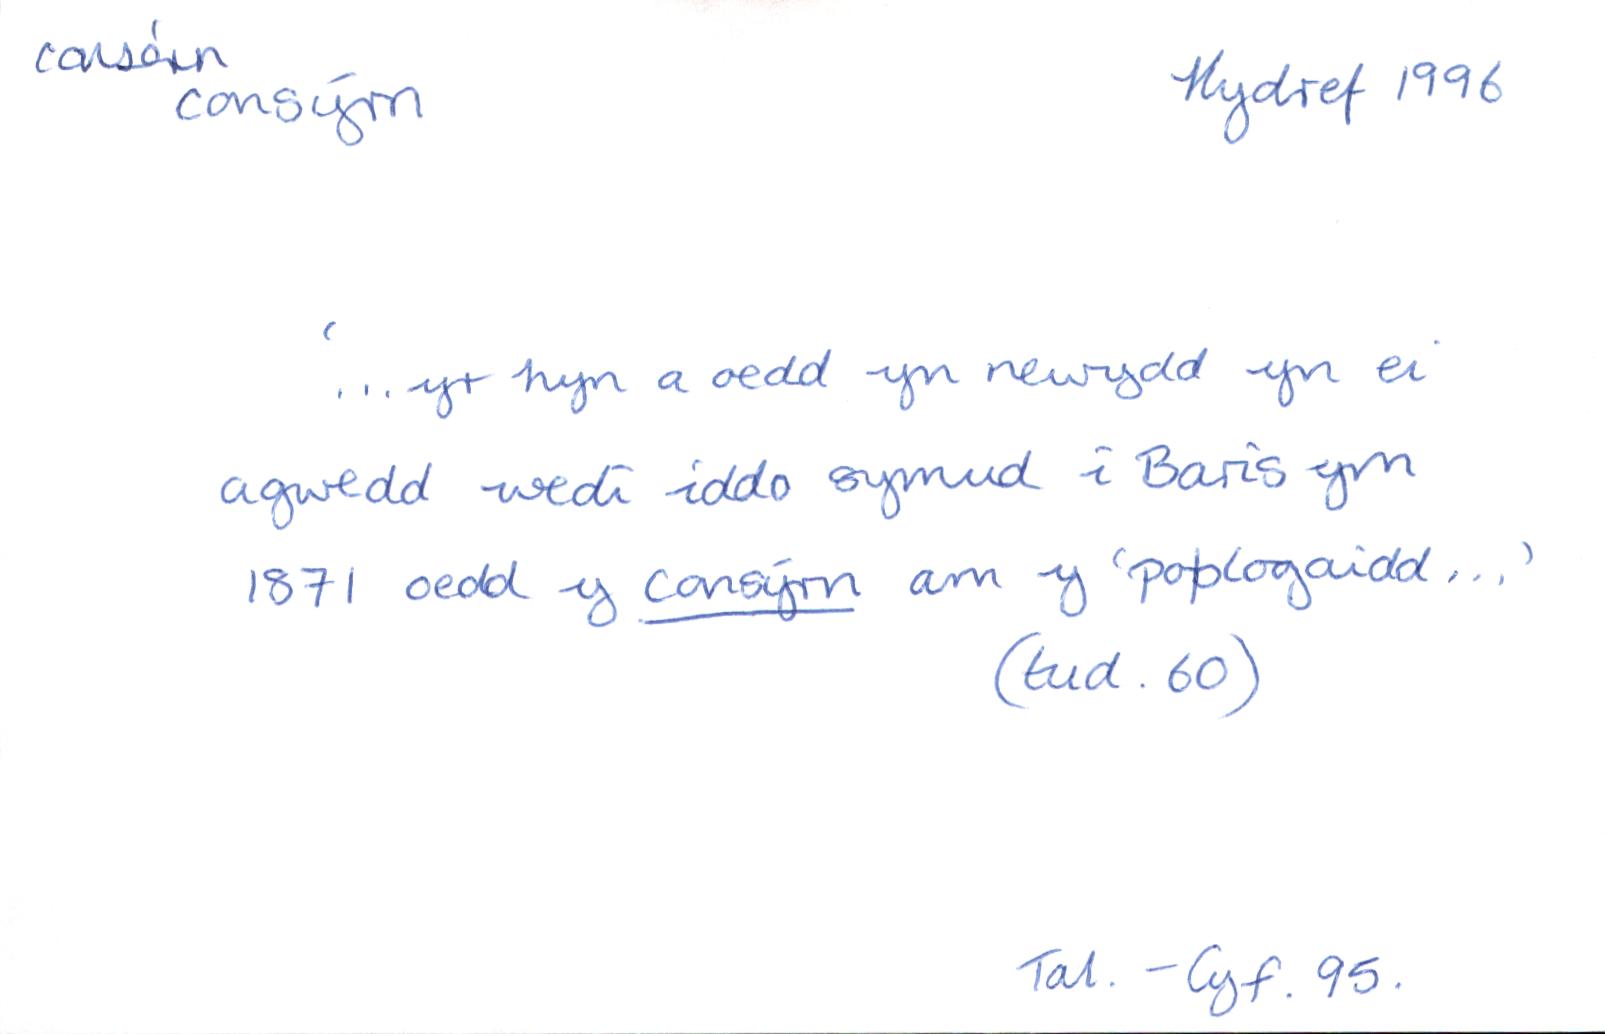 consýrn
Hydref 1996
‘... yr hyn a oedd yn newydd yn ei
agwedd wedi iddo symud i Baris ym
1871 oedd y consýrn am y ‘poblogaidd...’
(tud. 60)
Tal. - Cyf. 95.